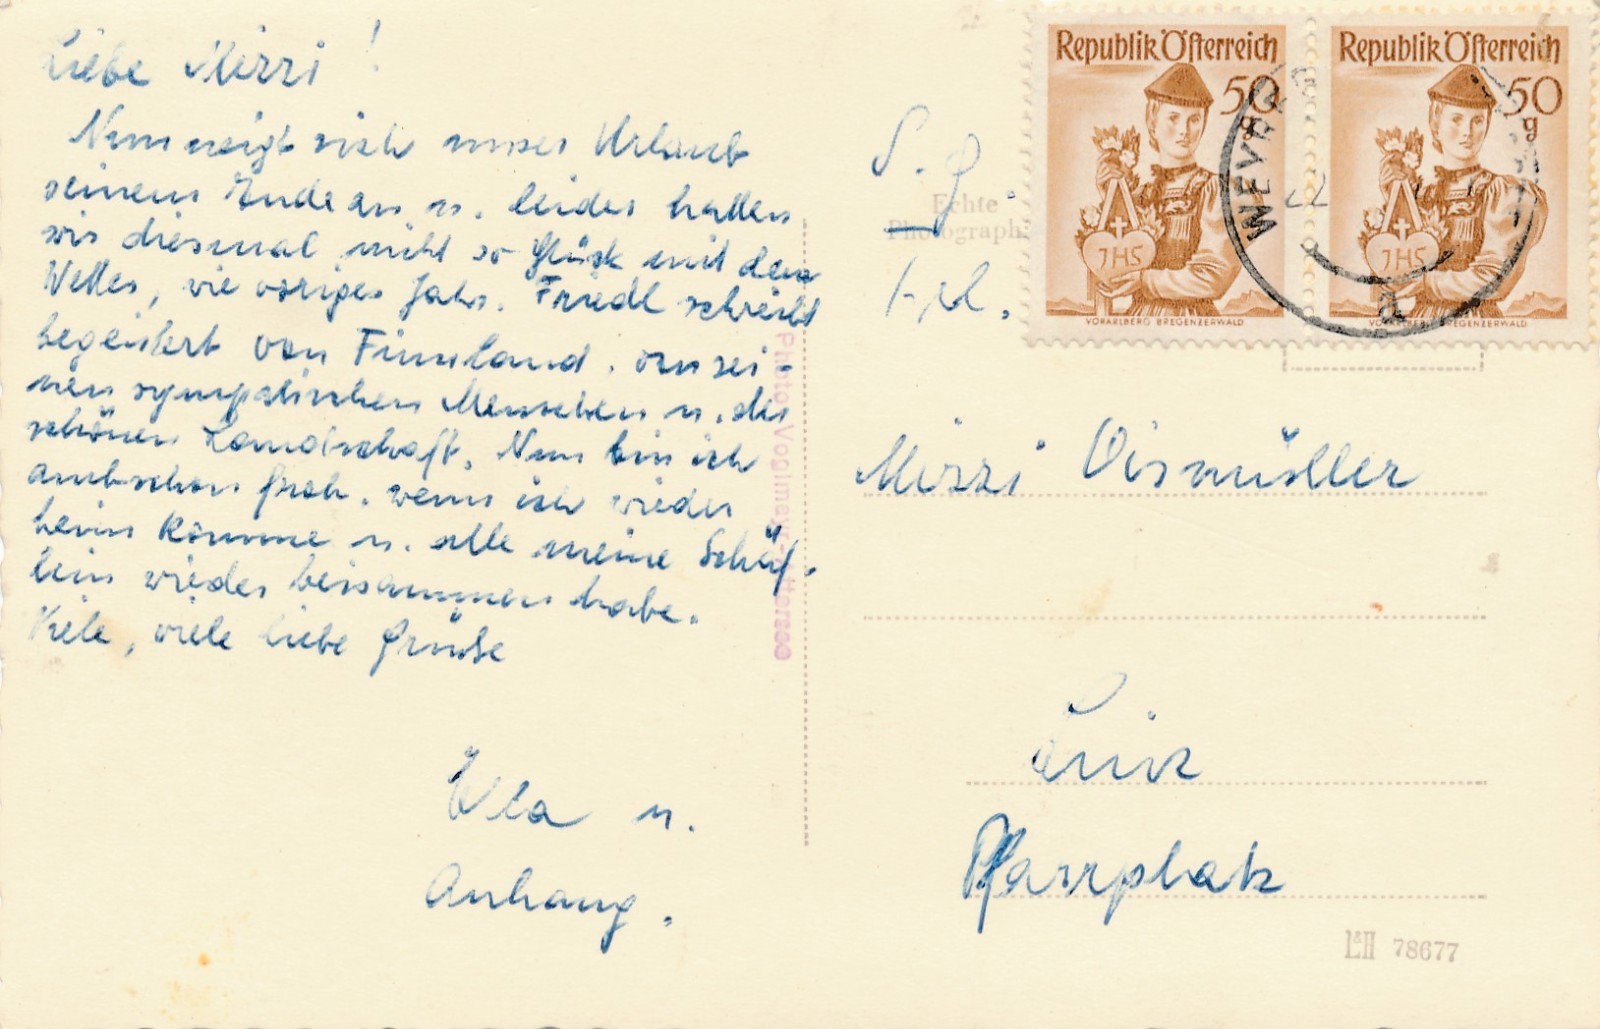 Liebe Mizzi!
Nun neigt sich unser Urlaub
seinem Ende an u. leider hatten
wir diesmal nicht so Glück mit dem
Wetter, wie voriges Jahr. Friedl schreibt
begeistert von Finnland, von sei-
nen sympatischen Menschen u. der
schönen Landschaft. Nun bin ich
auch schon froh, wenn ich wieder
heim komme u. alle meine Schäf-
lein wieder beisammen habe.
Viele, viele liebe Grüße
Ela u.
Anhang.
Photo Voglmayr
Echte
Photographie
S. g.
Frl.
Republik Österreich
50 g
JHS
VORARLBERG BREGENZERWALD
Republik Österreich
50 g
JHS
VORARLBERG BREGENZERWALD
WEYR
22
Mizzi
Linz
Pfarrplatz
L&H 78677